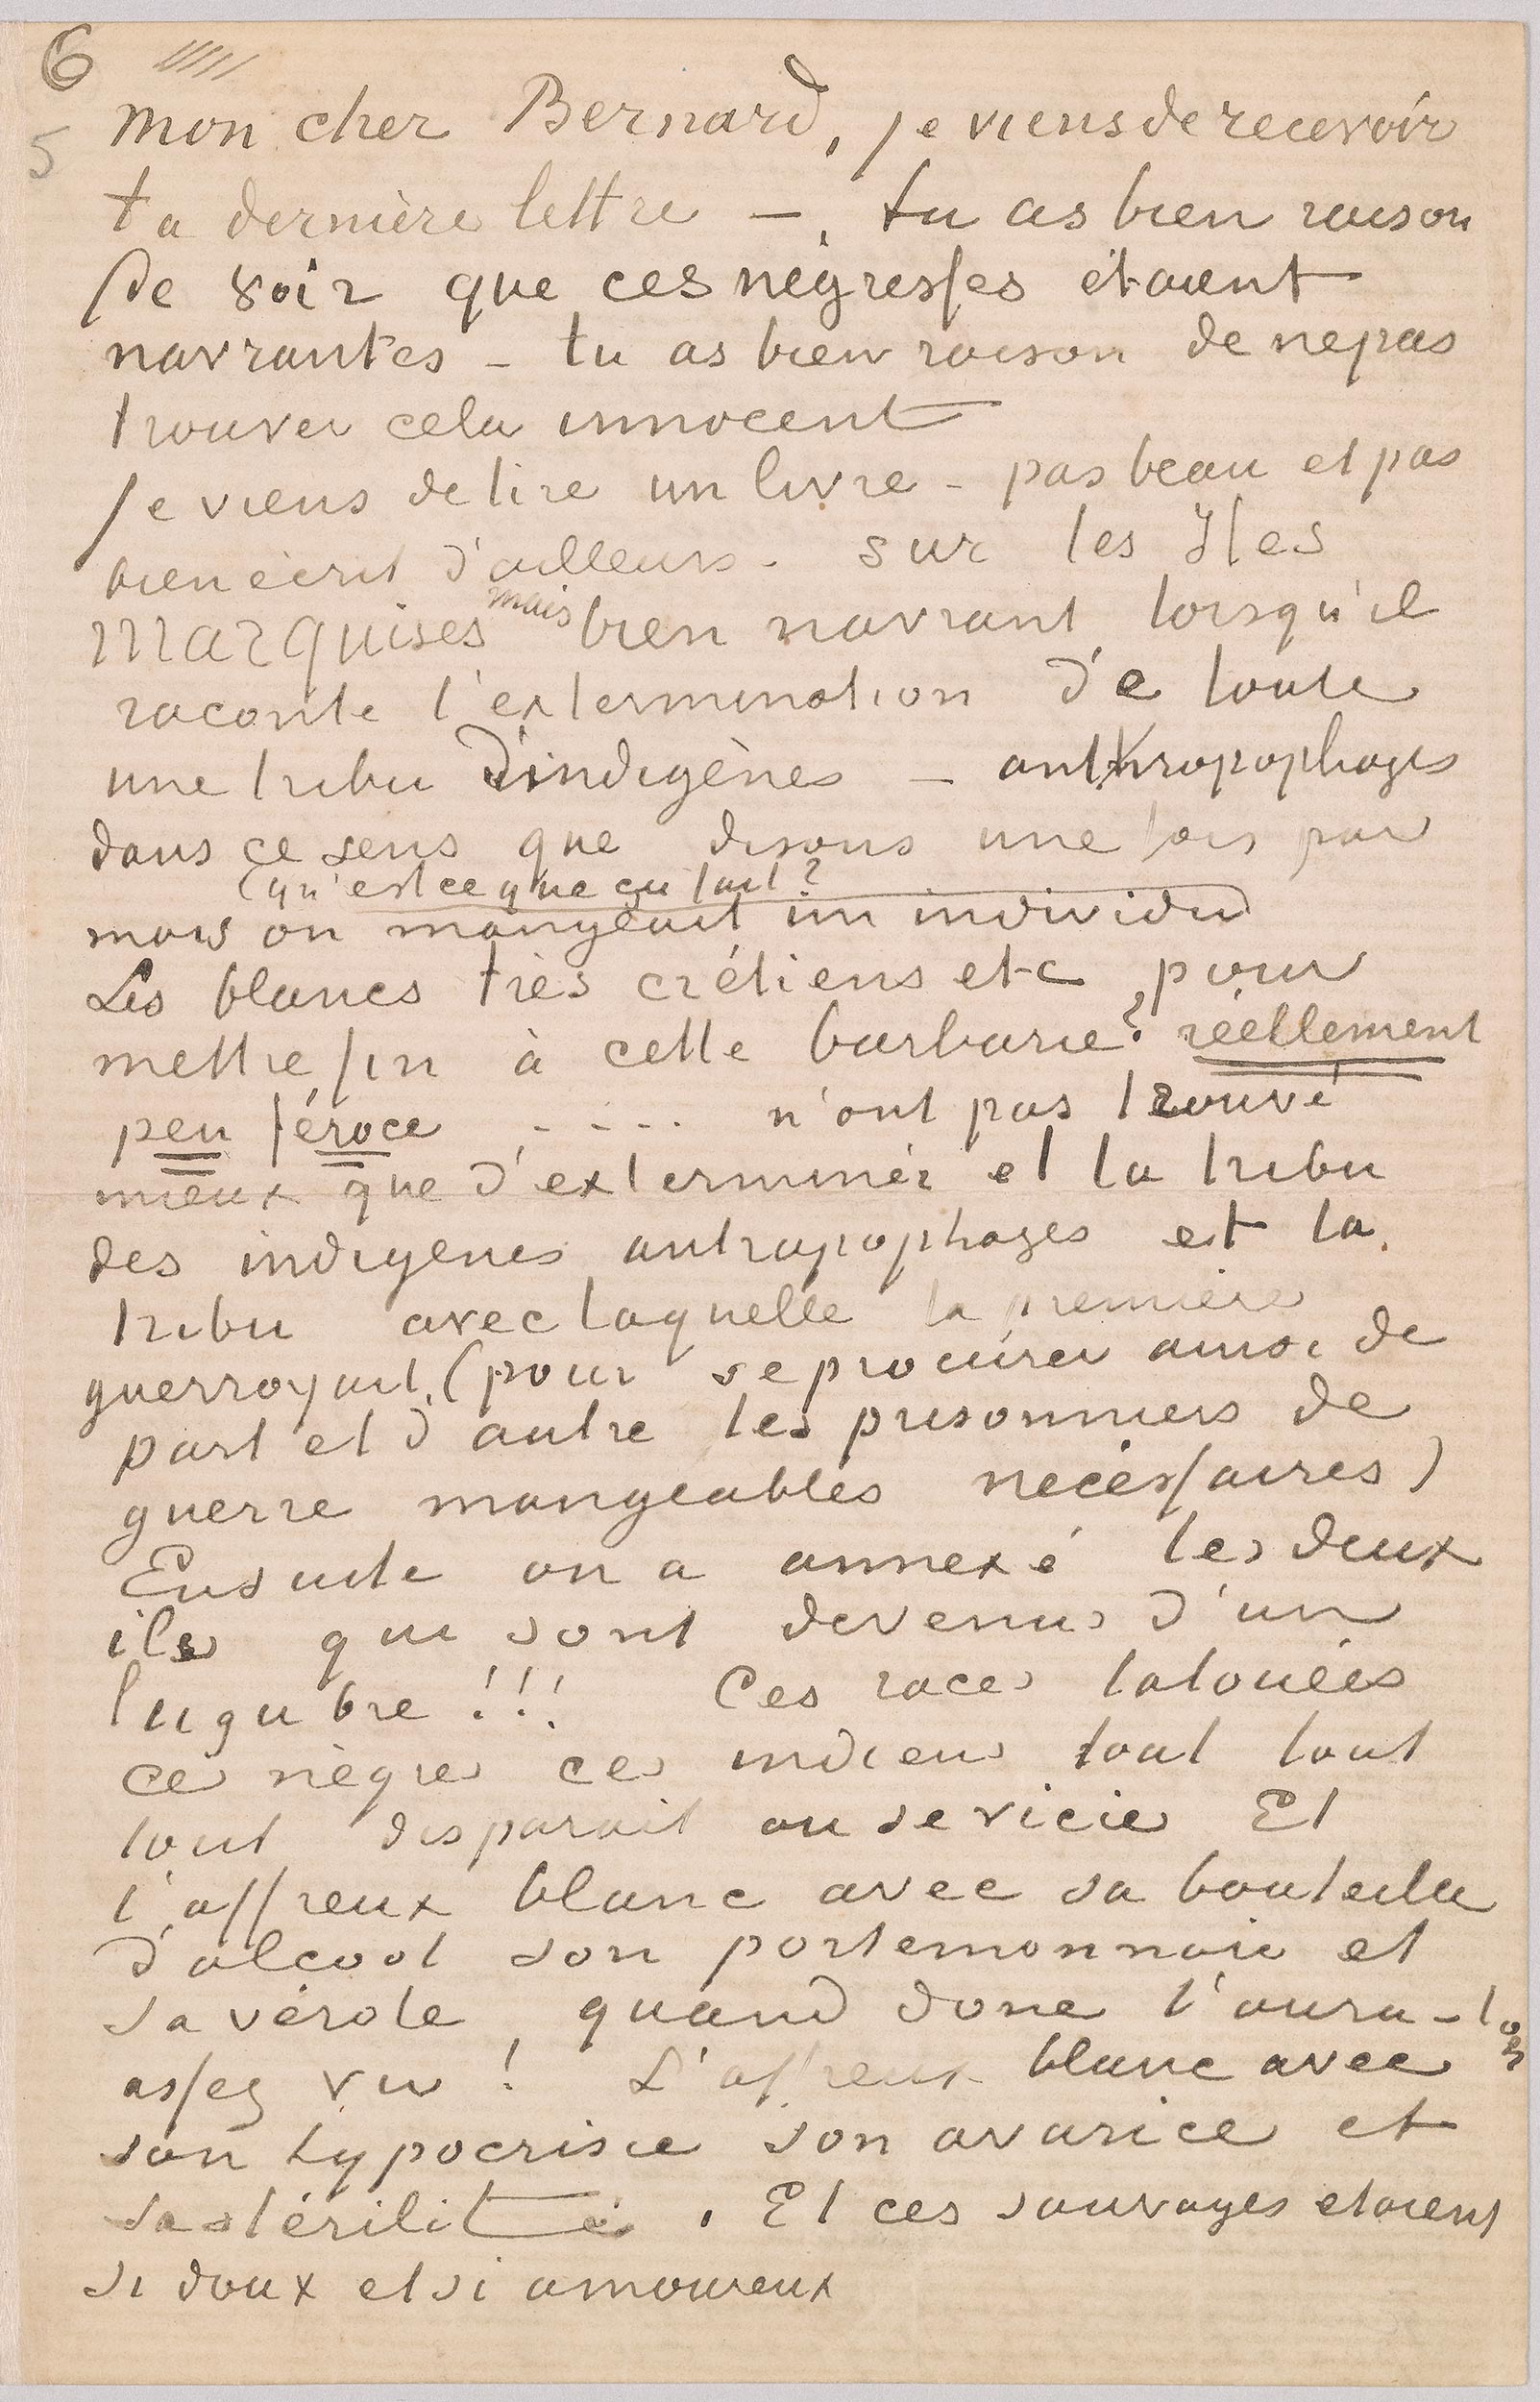 6
5
mon cher Bernard, je viens de recevoir
ta dernière lettre – tu as bien raison
de voir que ces négresses étaient
navrantes – tu as bien raison de ne pas
trouver cela innocent
Je viens de lire un livre – pas beau et pas
bien écrit d'ailleurs – sur les Iles
marquises mais bien navrant lorsqu'il
raconte l'extermination de toute
une tribu d'indigènes – anthropophages
dans ce sens que disons une fois par
(qu'est ce que ça fait ?
mois on mangeait un individu
Les blancs très crétiens etc pour
mettre fin à cette barbarie ? réellement
peu féroce ..... n'ont pas trouvé
mieux que d'exterminer et la tribu
des indigenes antropophages et la
tribu avec laquelle la première
guerroyait. (pour se procurer ainsi de
part et d'autre les prisonniers de
guerre mangeables nécéssaires)
Ensuite on a annexé les deux
iles qui sont devenus d'un
lugubre !!! Ces races tatouées
ces nègres ces indiens tout tout
tout disparait ou se vicie Et
l'affreux blanc avec sa bouteille
d'alcool son portemonnaie et
sa vérole, quand donc l'aura-t-on
assez vu ! L'affreux blanc avec
son hypocrisie son avarice et
sa stérilité. Et ces sauvages etaient
si doux et si amoureux